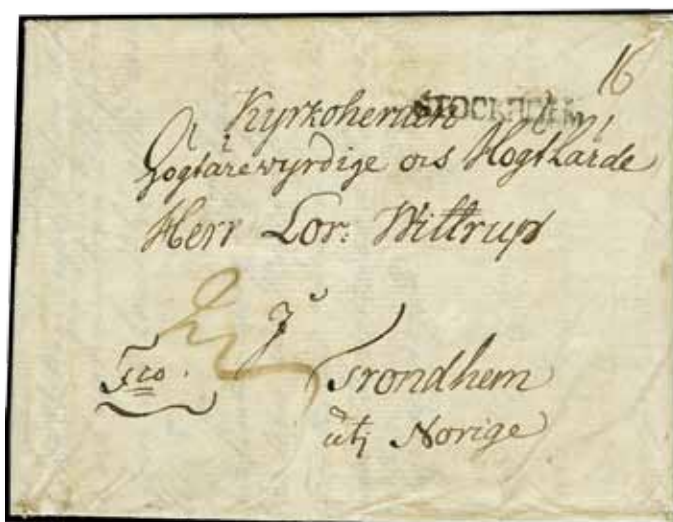 16
STOCKHOLM
Kyrkoherden
Högtärewyrdige och Höglärde
Herr Lor: Wittrup
Fco.
Trondhem
utj Norige